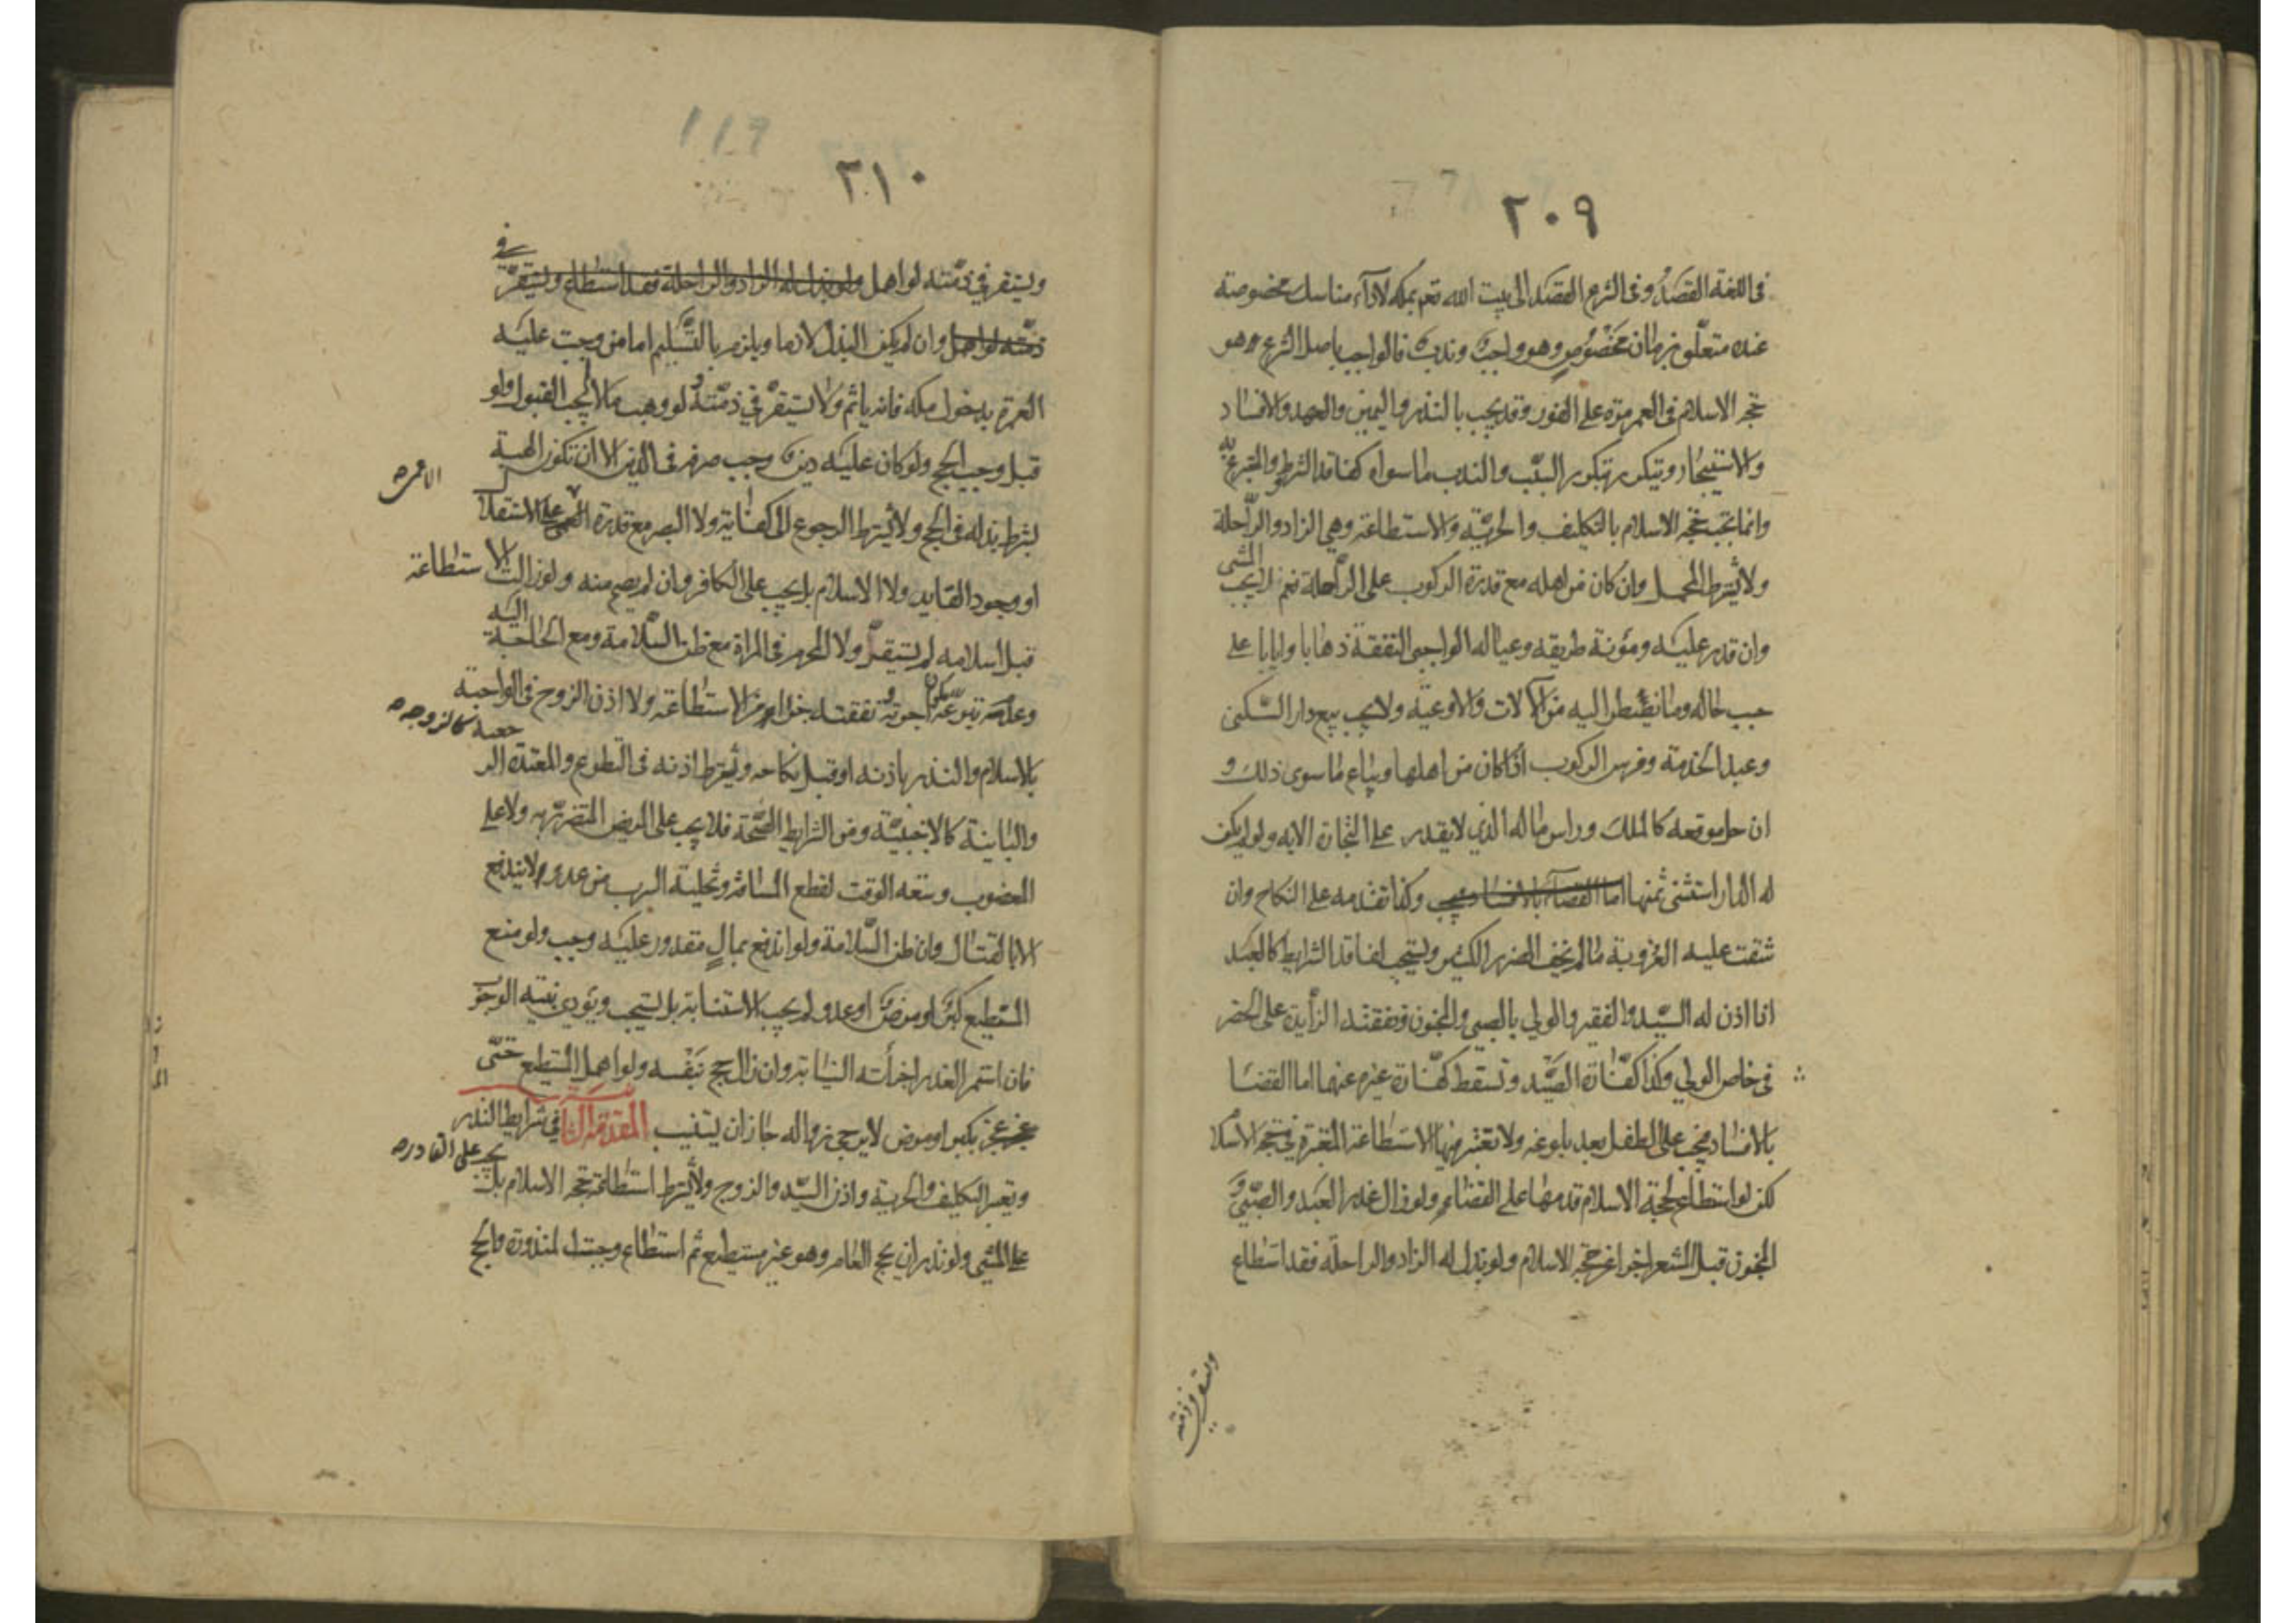 ٢٠٩
فى اللغة القصد وفى الشرع القصد الى بيت الله تعم بمكه لاداء مناسك مخصوصة
عنده متعلق بزمان مخصوص وهو واجب وندب فالواجب باصل الشرع وهو
حجة الاسلام فى العمر مرة على الفور وقد يجب بالنذر واليمين والعهد والافساد
والاستيجار ويتكرر بتكرر السبب والندب ما سواه كفاقد الشرط والمتبرع به
وانما تجب حجة الاسلام بالتكليف والحرية والاستطاعة وهى الزاد والراحلة
ولا يشترط المحمل وان كان من اهله مع قدرة الركوب على الراحلة نعم لا يجب المشى
وان قدر عليه ومؤنة طريقه وعياله الواجبى النفقة ذهابا وايابا على
حسب حاله وما نضطر اليه من الآلات والاوعية ولا يجب بيع دار السكنى
وعبد الخدمة وفرس الركوب اذا كان من اهلها ويباع ما سوى ذلك و
ان حل موقعه كالملك وراس ماله الذى لا يقدر على التجارة الا به ولو لم يكن
له الدار استثنى ثمنها اما القضاء بالافساد فيجب وكذا تقدمه على النكاح وان
شقت عليه العزوبة ما لم يخف الضرر الكثير ويستحب لفاقد الشرايط كالعبد
اذا اذن له السيد والفقير والولي بالصبي والمجنون ونفقته الزايدة على الحضر
فى خاص الولي وكذا كفارة الصيد وتسقط كفارة غيره عنها اما القضا
بالافساد فيجب على الطفل بعد بلوغه ولا تعتبر فيها الاستطاعة المعتبرة فى حجة الاسلام
لكن لو استطاع لحجة الاسلام قدمها على القضاء ولو زال عذر العبد والصبي و
المجنون قبل المشعر اجزا عن حجة الاسلام ولو بذل له الزاد والراحلة فقد استطاع
ويستقر فى ذمته
119
٢١٠
ويستقر فى ذمته لو اهمل ولو بذل له الزاد والراحلة فقد استطاع ويستقر فى
ذمته لو اهمل وان لم يكن البذل لازما ويلزم بالتسليم اما من وجبت عليه
العمرة بدخول مكه فانه ياثم ولا يستقر في ذمته ولو وهب مالا لم يجب القبول ولو
قبل وجب الحج ولو كان عليه دين وجب صرفه فى الدين الا ان تكون الهبة
بشرط بذله فى الحج ولا يشترط الرجوع الى كفاية ولا البصر مع قدرة الاعمى على الاستقلال
او وجود القايد ولا الاسلام بل يجب على الكافر وان لم يصح منه ولو زالت الاستطاعة
قبل اسلامه لم يستقر ولا المحرم فى المراة مع ظن السلامة ومع الحاجة اليه
وعدم تبرعه يكون اجرته ونفقته جزا من الاستطاعة ولا اذن الزوج فى الواجبة
رجعية كالزوجة
بالاسلام والنذر باذنه او قبل نكاحه ويشترط اذنه فى التطوع والمعتدة الر
والباينة كالاجنبية ومن الشرايط الصحة فلا يجب على المريض المتضرر به ولا على
المعضوب وسعة الوقت لقطع المسافة وتخلية السرب من عدو لا يندفع
الا بالقتال وان ظن السلامة ولو اندفع بمال مقدور عليه وجب ولو منع
المستطيع كبر او مرض او عدو لم يجب الاستنابة بل يستحب ويؤدى بنية الوجوب
فان استمر العذر اجزأته النيابة وان زال حج بنفسه ولو اهمل المستطيع حتى
عجز بكبر او مرض لا يرجى زواله جاز ان يستنيب المقدمة الثا فى شرايط النذر
يجب على القادر
ويعتبر التكليف والحرية واذن السيد والزوج ولا يشترط استطاعة حجة الاسلام بل
على المشى ولو نذر ان يحج العام وهو غير مستطيع ثم استطاع وجبت المنذورة والحج